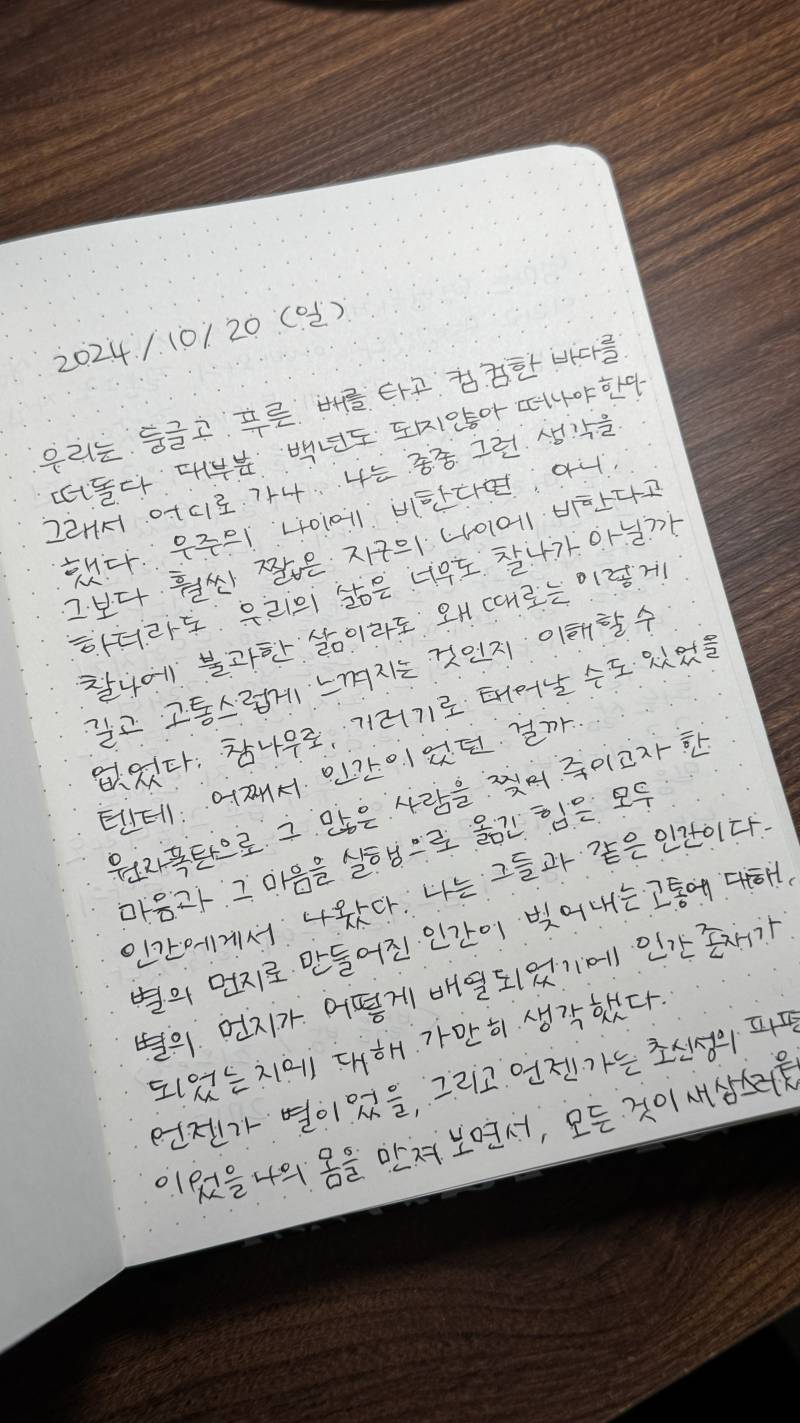 2024/10/20 (일)
우리는 둥글고 푸른 배를 타고 컴컴한 바다를
떠돌다 대부분 백년도 되지않아 떠나야한다
그래서 어디로 가나. 나는 종종 그런 생각을
했다. 우주의 나이에 비한다면, 아니,
그보다 훨씬 짧은 지구의 나이에 비한다고
하더라도 우리의 삶은 너무도 찰나가 아닐까
찰나에 불과한 삶이라도 왜 때로는 이렇게
길고 고통스럽게 느껴지는 것인지 이해할 수
없었다. 참나무로, 기러기로 태어날 수도 있었을
텐데. 어째서 인간이었던 걸까.
원자폭탄으로 그 많은 사람을 찢어 죽이고자 한
마음과 그 마음을 실행으로 옮긴 힘은 모두
인간에게서 나왔다. 나는 그들과 같은 인간이다.
별의 먼지로 만들어진 인간이 빚어내는 고통에 대해,
별의 먼지가 어떻게 배열되었기에 인간 존재가
되었는지에 대해 가만히 생각했다.
언젠가 별이었을, 그리고 언젠가는 초신성의 파편
이었을 나의 몸을 만져보면서, 모든 것이 새삼스러웠